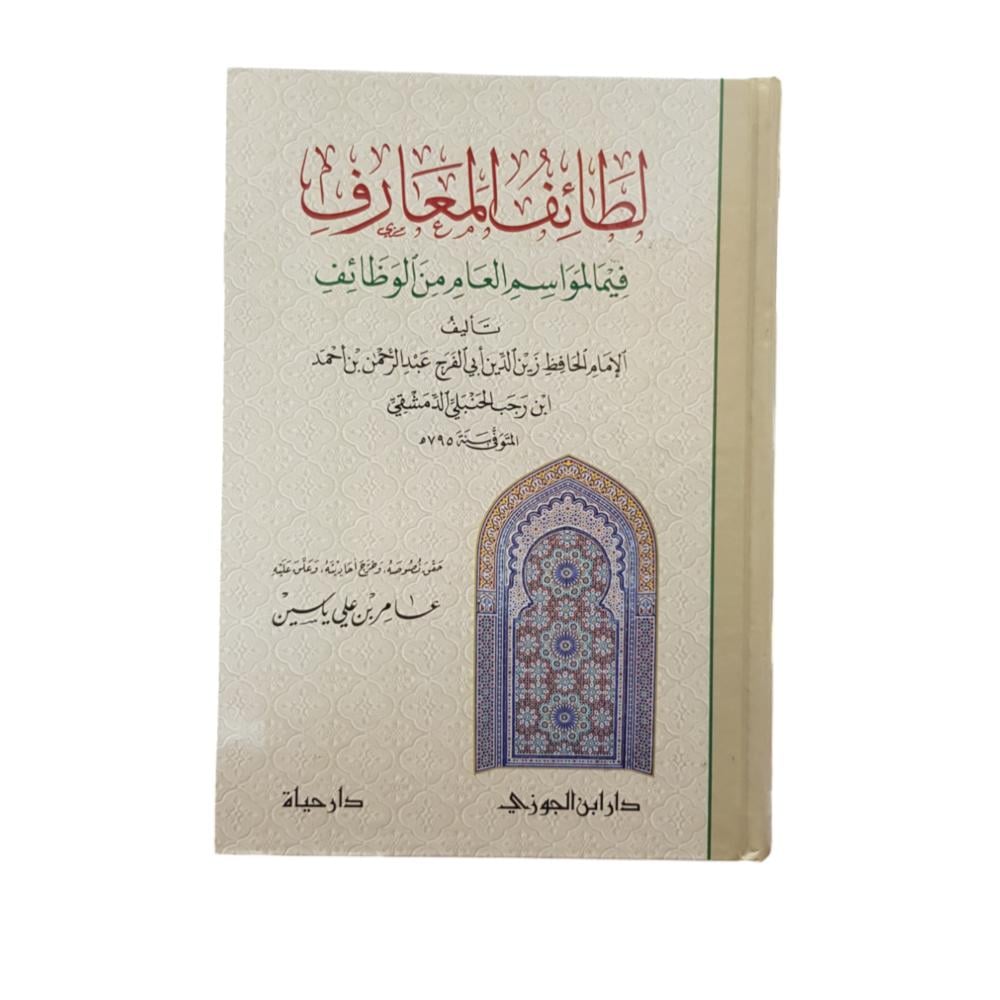 لَطَائِفُ الْمَعَارِفِ
فِيمَا لِمَوَاسِمِ الْعَامِ مِنَ الْوَظَائِفِ
تَأليفُ
الإمَامِ الحَافِظِ زَيْنِ الدِّينِ أَبِي الفَرَجِ عَبْدِ الرَّحْمٰنِ بْنِ أَحْمَد
ابْنِ رَجَبٍ الحَنْبَلِيِّ الدِّمَشْقِيِّ
المتَوَفَّى سَنَة ٧٩٥ه
حَقَّقَ نُصُوصَهُ، وَخَرَّجَ أحَادِيثَهُ، وَعَلَّقَ عَلَيْهِ
عَامِرُ بْنُ عَلِي يَاسِينْ
دار ابن الجوزي
دار حياة